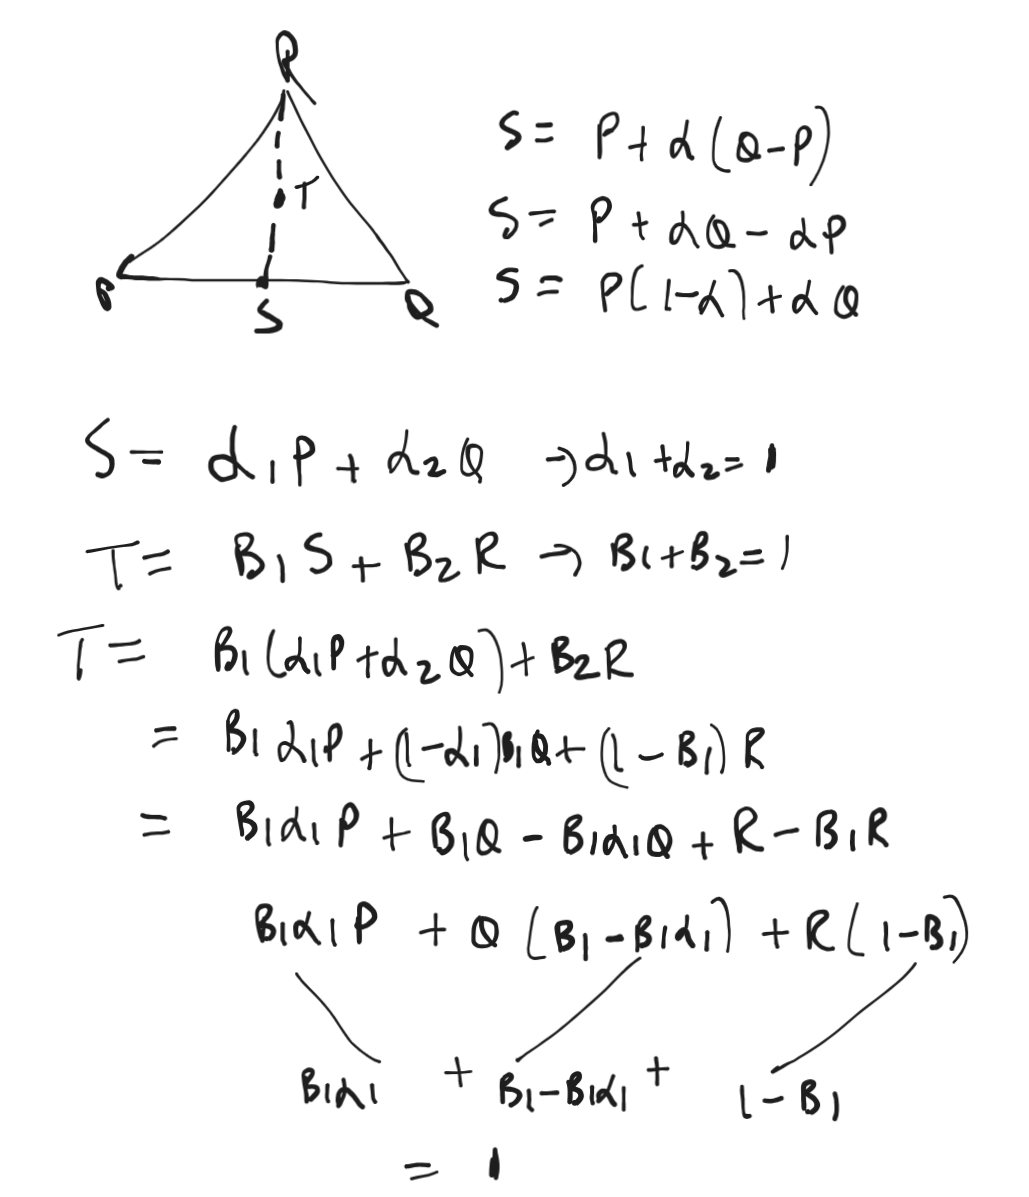 R
T
P
S
Q
S = P + α(Q-P)
S = P + αQ - αP
S = P(1-α) + αQ
S = α₁P + α₂Q → α₁ + α₂ = 1
T = B₁S + B₂R → B₁ + B₂ = 1
T = B₁(α₁P + α₂Q) + B₂R
= B₁α₁P + (1-α₁)B₁Q + (1 - B₁)R
= B₁α₁P + B₁Q - B₁α₁Q + R - B₁R
B₁α₁P + Q(B₁ - B₁α₁) + R(1-B₁)
B₁α₁ + B₁ - B₁α₁ + 1 - B₁
= 1